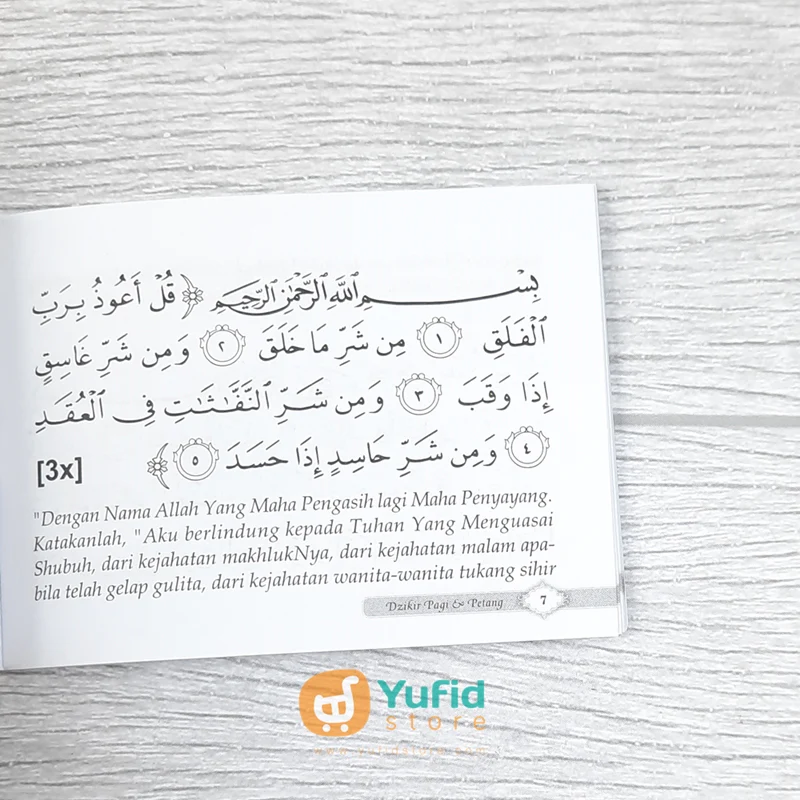 بِسْمِ ٱللَّهِ ٱلرَّحْمَٰنِ ٱلرَّحِيمِ ﴿ قُلْ أَعُوذُ بِرَبِّ
ٱلْفَلَقِ ١ مِن شَرِّ مَا خَلَقَ ٢ وَمِن شَرِّ غَاسِقٍ
إِذَا وَقَبَ ٣ وَمِن شَرِّ ٱلنَّفَّٰثَٰتِ فِى ٱلْعُقَدِ
٤ وَمِن شَرِّ حَاسِدٍ إِذَا حَسَدَ ٥ ﴾ [3x]
"Dengan Nama Allah Yang Maha Pengasih lagi Maha Penyayang.
Katakanlah, "Aku berlindung kepada Tuhan Yang Menguasai
Shubuh, dari kejahatan makhlukNya, dari kejahatan malam apa-
bila telah gelap gulita, dari kejahatan wanita-wanita tukang sihir
Dzikir Pagi & Petang 7
Yufid
store